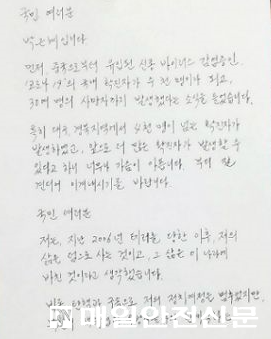 국민 여러분
박근혜입니다
먼저, 중국으로부터 유입된 신종 바이러스 감염증인
'코로나 19'의 국내 확진자가 수 천 명이나 되고,
30여 명의 사망자까지 발생했다는 소식을 들었습니다.
특히 대구 경북지역에서 4천 명이 넘는 확진자가
발생하였고, 앞으로 더 많은 확진자가 발생할 수
있다고 하니 너무나 가슴이 아픕니다. 부디 잘
견디어 이겨내시기를 바랍니다.
국민 여러분
저는, 지난 2006년 테러를 당한 이후, 저의
삶은 덤으로 사는 것이고, 그 삶은 이 나라에
바친 것이라고 생각했습니다.
비록 탄핵과 구속으로 저의 정치여정은 멈추었지만,
매일안전신문